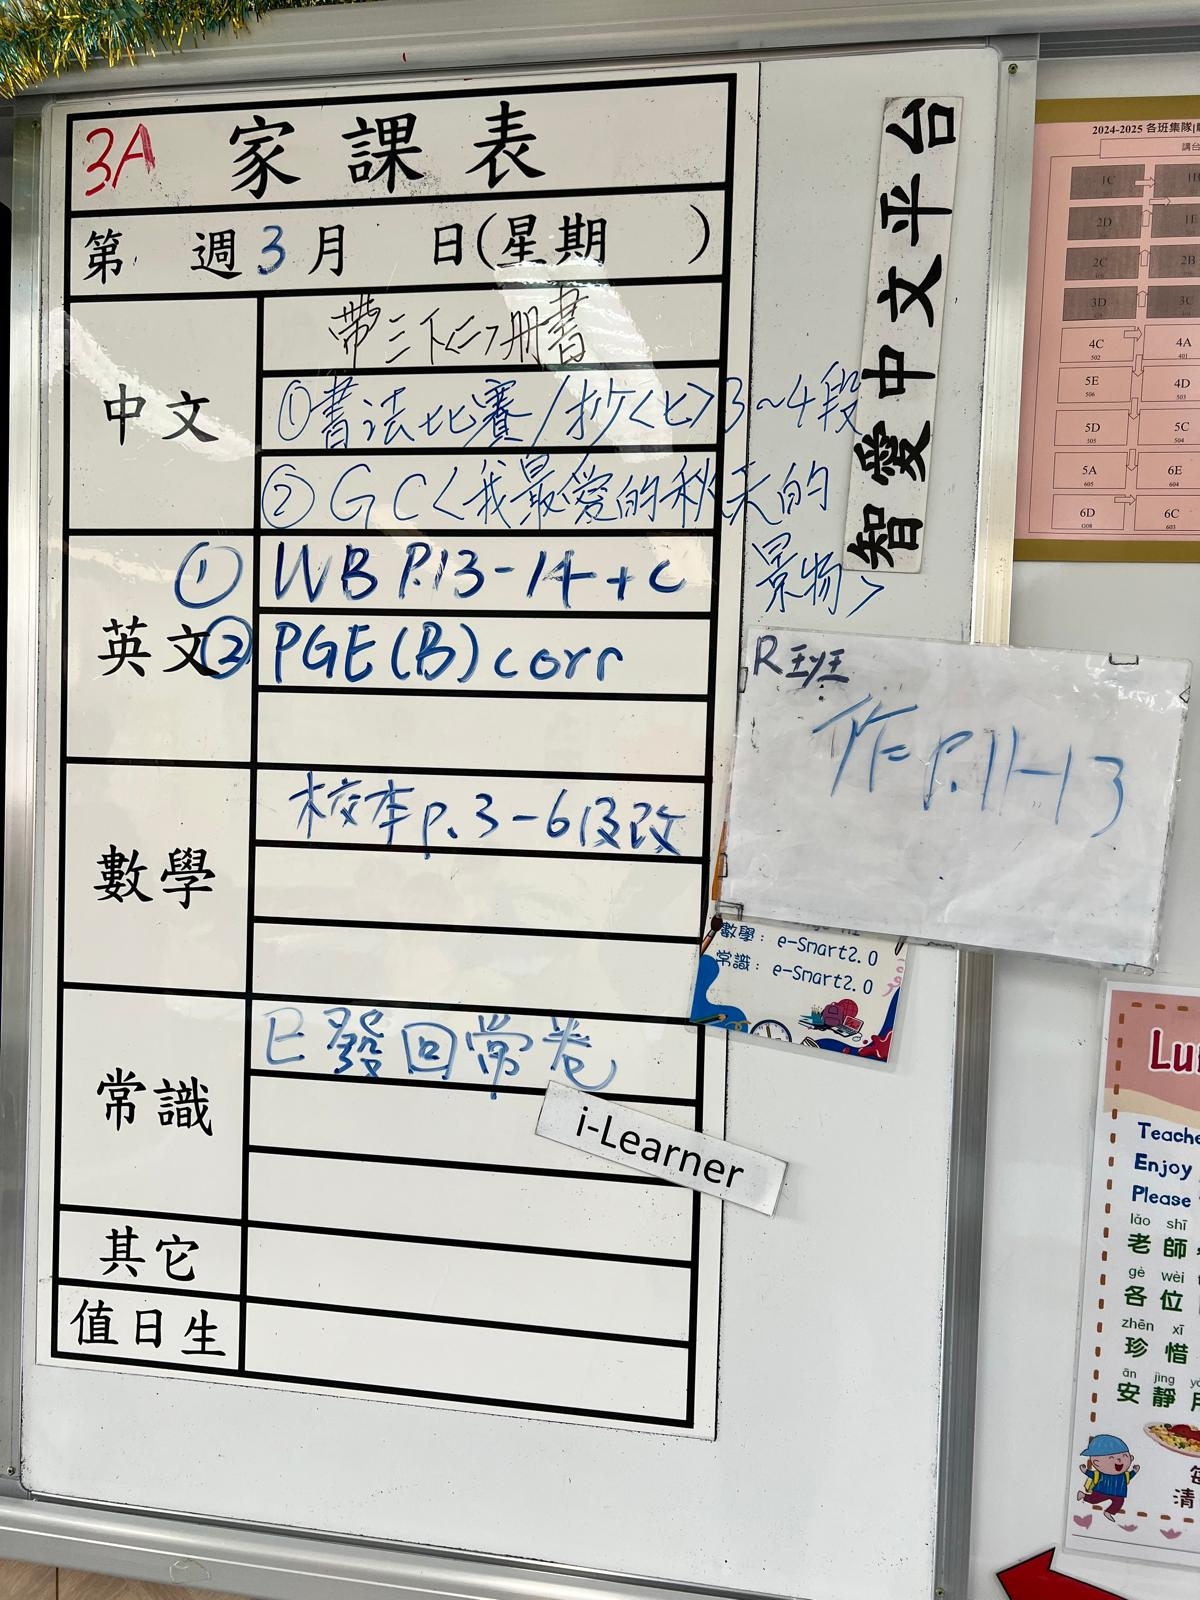 3A 家課表
第 週 3 月 日(星期 )
中文
帶三下<二>冊書
①書法比賽/抄<七>3~4段
②GC<我最愛的秋天的
景物>
英文
① WB P.13-14+c
② PGE(B)corr
數學
校本p.3-6及改
常識
已發回常卷
i-Learner
其它
值日生
智愛中文平台
R班
作p.11-13
數學: e-Smart2.0
常識: e-Smart2.0
2024-2025 各班集隊
講台
1C
2D
2C 2B
3D 3C
4C 4A
502 401
5E 4D
506 503
5D 5C
505 504
5A 6E
605 604
6D 6C
G08 603
Teache
Enjoy
Please
lǎo shī
老師
gè wèi
各位
zhēn xī
珍惜
ān jìng
安靜
清